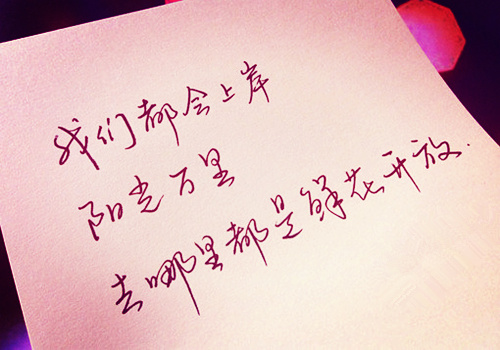 我们都会上岸
阳光万里
去哪里都是鲜花开放.